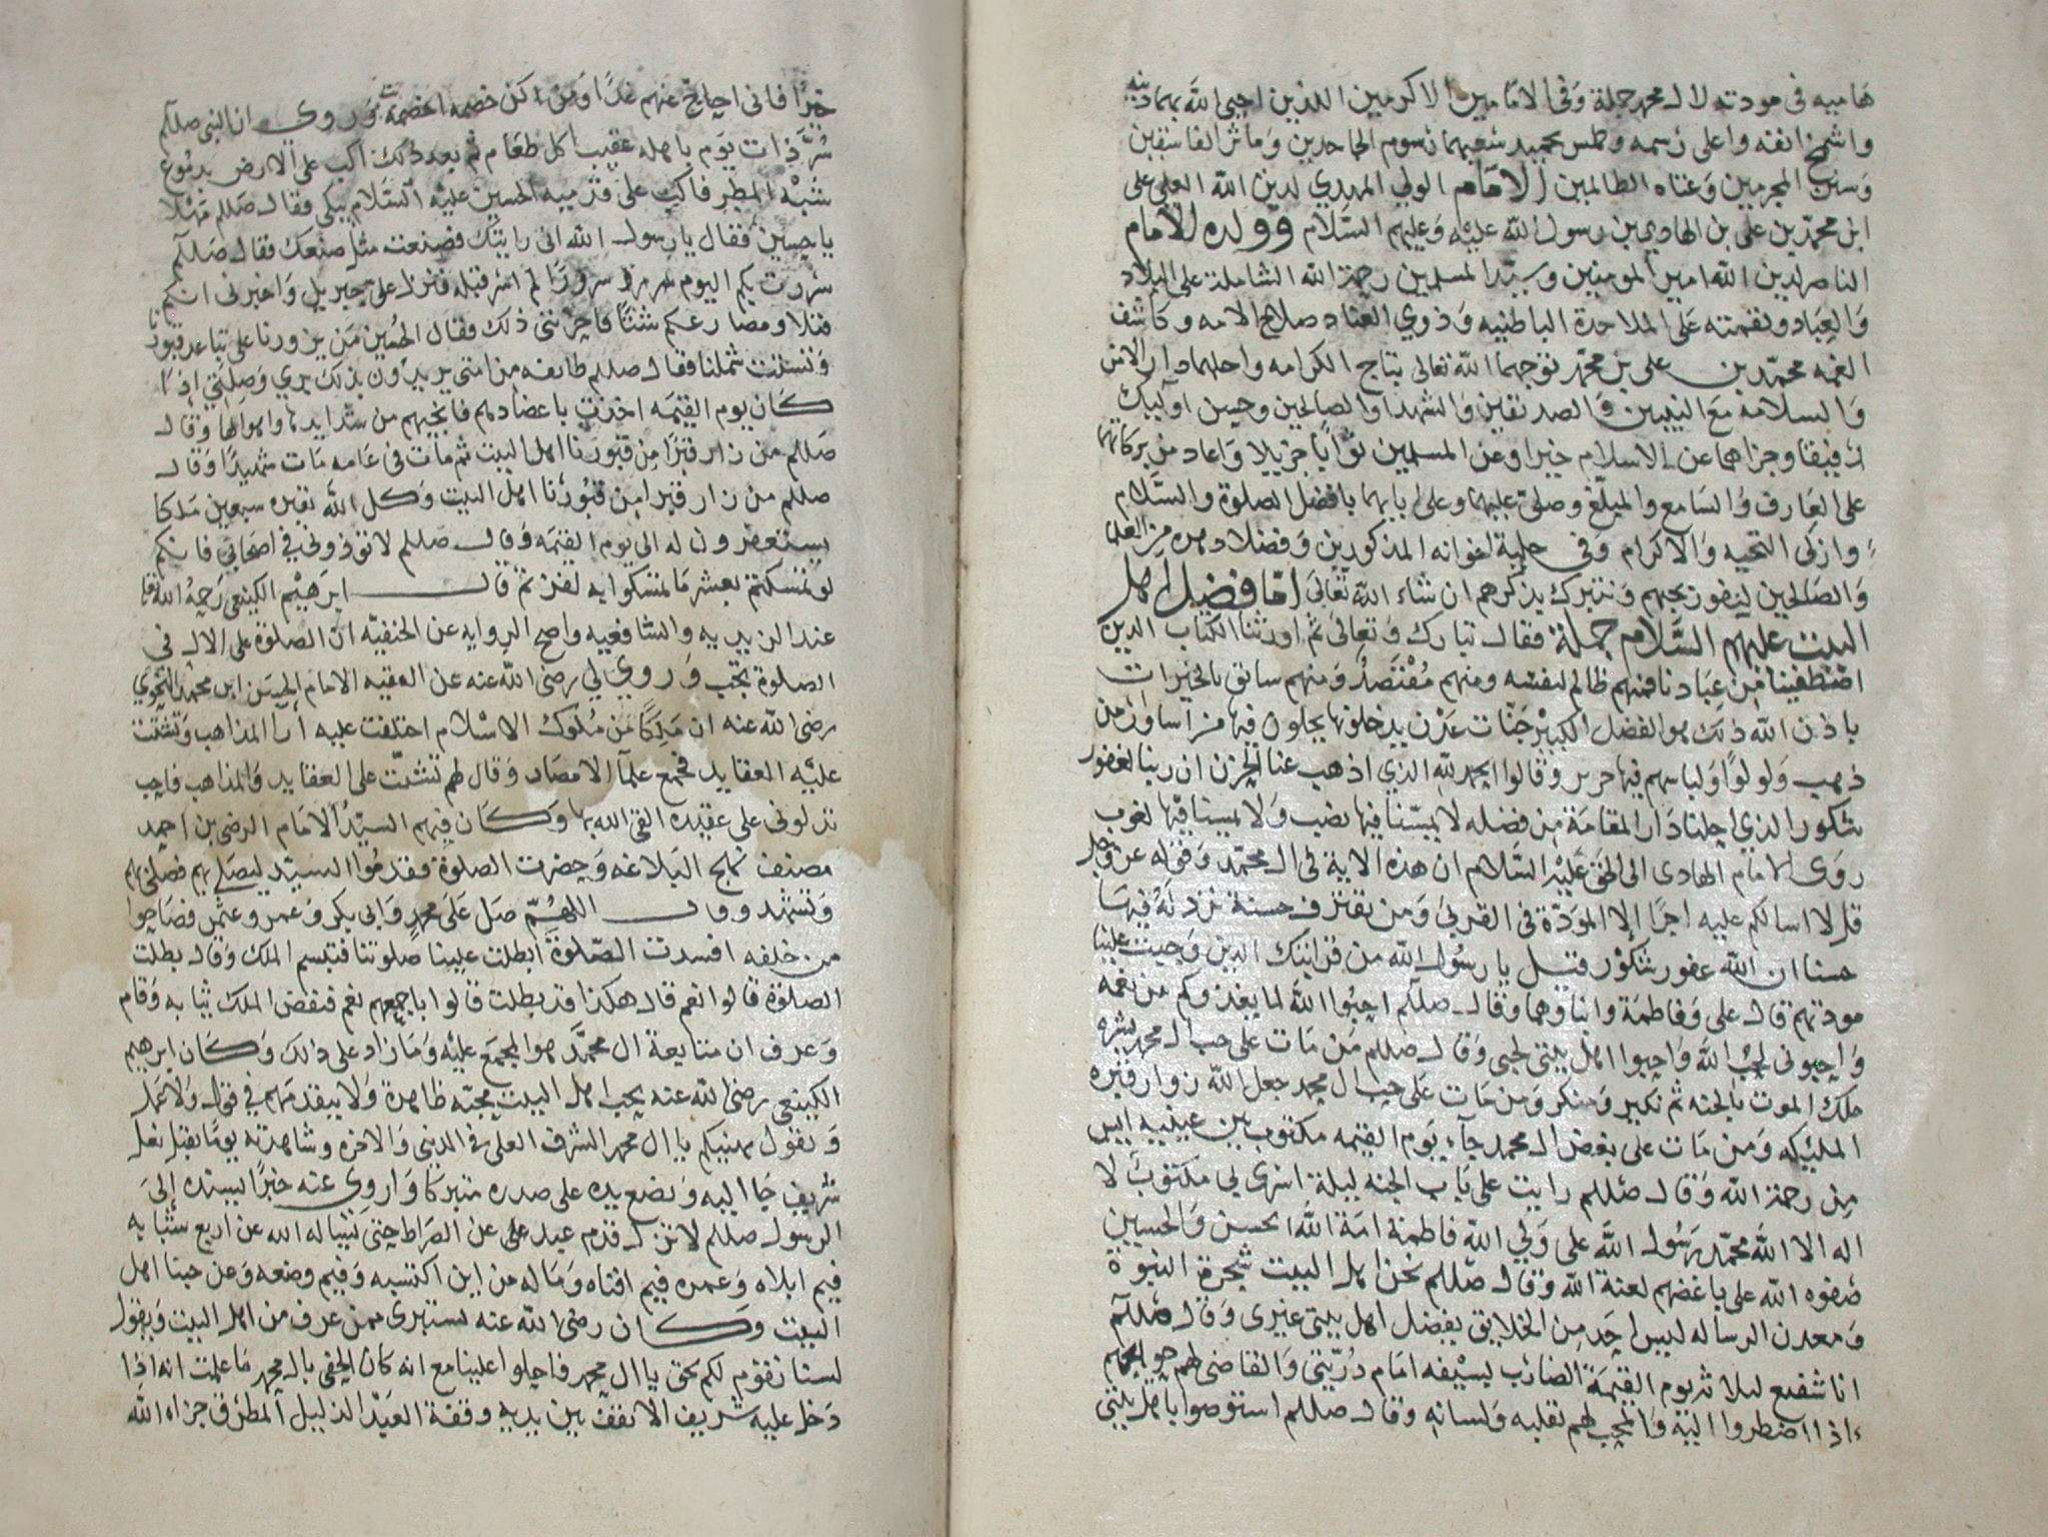 هاميه في مودته لال محمد جملة وفي الامامين الاكرمين اللذين احيى الله بهما دينه
واشمخ انفه واعلى رسمه وطمس بحميد سعيهما رسوم الجاحدين ومآثر الفاسقين
وسنن المجرمين وعتاه الظالمين الامام الولي المهدي لدين الله العلي علي
ابن محمد بن علي بن الهادي بن رسول الله عليه وعليهم السلام وولده الامام
الناصر لدين الله امير المومنين وسيد المسلمين رحمة الله الشاملة على البلاد
والعباد ونقمته على الملاحدة الباطنيه وذوي العناد صلاح الامه وكاشف
الغمه محمد بن علي بن محمد توجهما الله تعالى بتاج الكرامه واحلهما دار الامن
والسلامه مع النبيين والصديقين والشهدا والصالحين وحسن اوليك
رفيقا وجزاهما عن الاسلام خيرا وعن المسلمين ثوابا جزيلا واعاد من بركاتهما
على العارف والسامع والمبلغ وصلى عليهما وعلى ابايهما بافضل الصلوة والسلام
وازكى التحيه والاكرام وفي حلية اخوانه المذكورين وفضلا دهره من العلما
والصالحين ليفوز بحبهم ونتبرك بذكرهم ان شاء الله تعالى اما فضل اهل
البيت عليهم السلام جملة فقال تبارك وتعالى ثم اورثنا الكتاب الذين
اصطفينا من عبادنا فمنهم ظالم لنفسه ومنهم مقتصد ومنهم سابق بالخيرات
باذن الله ذلك هو الفضل الكبير جنات عدن يدخلونها يحلون فيها من اساور من
ذهب ولولوا ولباسهم فيها حرير وقالوا الحمد لله الذي اذهب عنا الحزن ان ربنا لغفور
شكور الذي احلنا دار المقامة من فضله لا يمسنا فيها نصب ولا يمسنا فيها لغوب
روى الامام الهادى الى الحق عليه السلام ان هذه الاية في ال محمد وقوله عز وجل
قل لا اسالكم عليه اجرا الا المودة في القربى ومن يقترف حسنة نزد له فيها
حسنا ان الله غفور شكور قيل يا رسول الله من قرابتك الذين وجبت علينا
مودتهم قال علي وفاطمة وابناوهما وقال صللم احبوا الله لما يغذوكم من نعمه
واحبوني لحب الله واحبوا اهل بيتي لحبي وقال صللم من مات على حب ال محمد بشره
ملك الموت بالجنه ثم نكير ومنكر ومن مات على حب ال محمد جعل الله زوار قبره
المليكه ومن مات على بغض ال محمد جاء يوم القيمه مكتوب بين عينيه ايس
من رحمة الله وقال صللم رايت على باب الجنه ليلة اسري بي مكتوب لا
اله الا الله محمد رسول الله علي ولي الله فاطمة امة الله الحسن والحسين
صفوه الله على باغضهم لعنة الله وقال صللم نحن اهل البيت شجرة النبوة
ومعدن الرساله ليس احد من الخلايق يفضل اهل بيتي غيري وقال صللم
انا شفيع لثلاثه يوم القيمة الضارب بسيفه امام ذريتي والقاضي لهم حوايجهم
اذا اضطروا اليه والمحب لهم بقلبه ولسانه وقال صللم استوصوا باهل بيتي
خيرا فاني احاج عنهم غدا ومن اكن خصمه اخصمه وروي ان النبي صللم
سر ذات يوم باهله عقيب اكل طعام ثم بعد ذلك اكب على الارض بدموع
شبه المطر فاكب على قدميه الحسين عليه السلام يبكي فقال صللم مهلا
يا حسين فقال يا رسول الله اني رايتك فصنعت مثل صنعك فقال صللم
سررت بكم اليوم سرورا لم اسر قبله فنزل علي جبريل واخبرني انكم
قتلا ومصارعكم شتا فاحزنني ذلك فقال الحسين من يزورنا على تباعد قبورنا
وتشتت شملنا فقال صللم طايفه من امتي يريدون بذلك بري وصلتي اذا
كان يوم القيمه اخذت باعضادهم فانجيهم من شدايدها واهوالها وقال
صللم من زار قبرا من قبورنا اهل البيت ثم مات في عامه مات شهيدا وقال
صللم من زار قبرا من قبورنا اهل البيت وكل الله بقبره سبعين ملكا
يستغفرون له الى يوم القيمه وقال صللم لا توذوني في اصحابي فانكم
لو تمسكتم بعشر ما تمسكوا به لفزتم قال ابرهيم الكينعي رحمه الله تعالى
عند الزيديه والشافعيه واصح الروايه عن الحنفيه ان الصلوة على الال في
الصلوة تجب وروي لي رضي الله عنه عن الفقيه الامام الحسن ابن محمد النحوي
رضي الله عنه ان ملكا من ملوك الاسلام اختلفت عليه ارا المذاهب وتشتت
عليه العقايد فجمع علمآ الامصار وقال لهم تشتت علي العقايد والمذاهب فاحب
تدلوني على عقيدة القى الله بها وكان فيهم السيد الامام الرضي بن احمد
مصنف نهج البلاغه وحضرت الصلوة فقدموا السيد ليصلي بهم فصلى بهم
وتشهد وقال اللهم صل على محمد وابي بكر وعمر وعثمن فصاحوا
من خلفه افسدت الصلوة ابطلت علينا صلوتنا فتبسم الملك وقال بطلت
الصلوة قالوا نعم قال هكذا قد بطلت قالوا باجمعهم نعم فنفض الملك ثيابه وقام
وعرف ان متابعة ال محمد هو المجمع عليه وما زاد على ذلك وكان ابرهيم
الكينعي رضي الله عنه يحب اهل البيت محبة ظاهرة ولا يتقدمهم في قول ولا عمل
ويقول يهنيكم يا ال محمد الشرف العلي في الدنيى والاخره وشاهدته يوما يقبل نعل
شريف جا اليه ويضع يده على صدره متبركا واروي عنه خبرا يسنده الى
الرسول صللم لا تزل قدم عبد علي عن الصراط حتى يسئاله الله عن اربع شبابه
فيم ابلاه وعمره فيم افناه وماله من اين اكتسبه وفيم وضعه وعن حبنا اهل
البيت وكان رضي الله عنه يستبرى ممن عرف من اهل البيت ويقول
لسنا نقوم لكم بحق يا ال محمد فاحلوا علينا مع انه كان الحفي بال محمد ما علمت انه اذا
دخل عليه شريف الا يقف بين يديه وقفة العبد الذليل المطرق جزاه الله